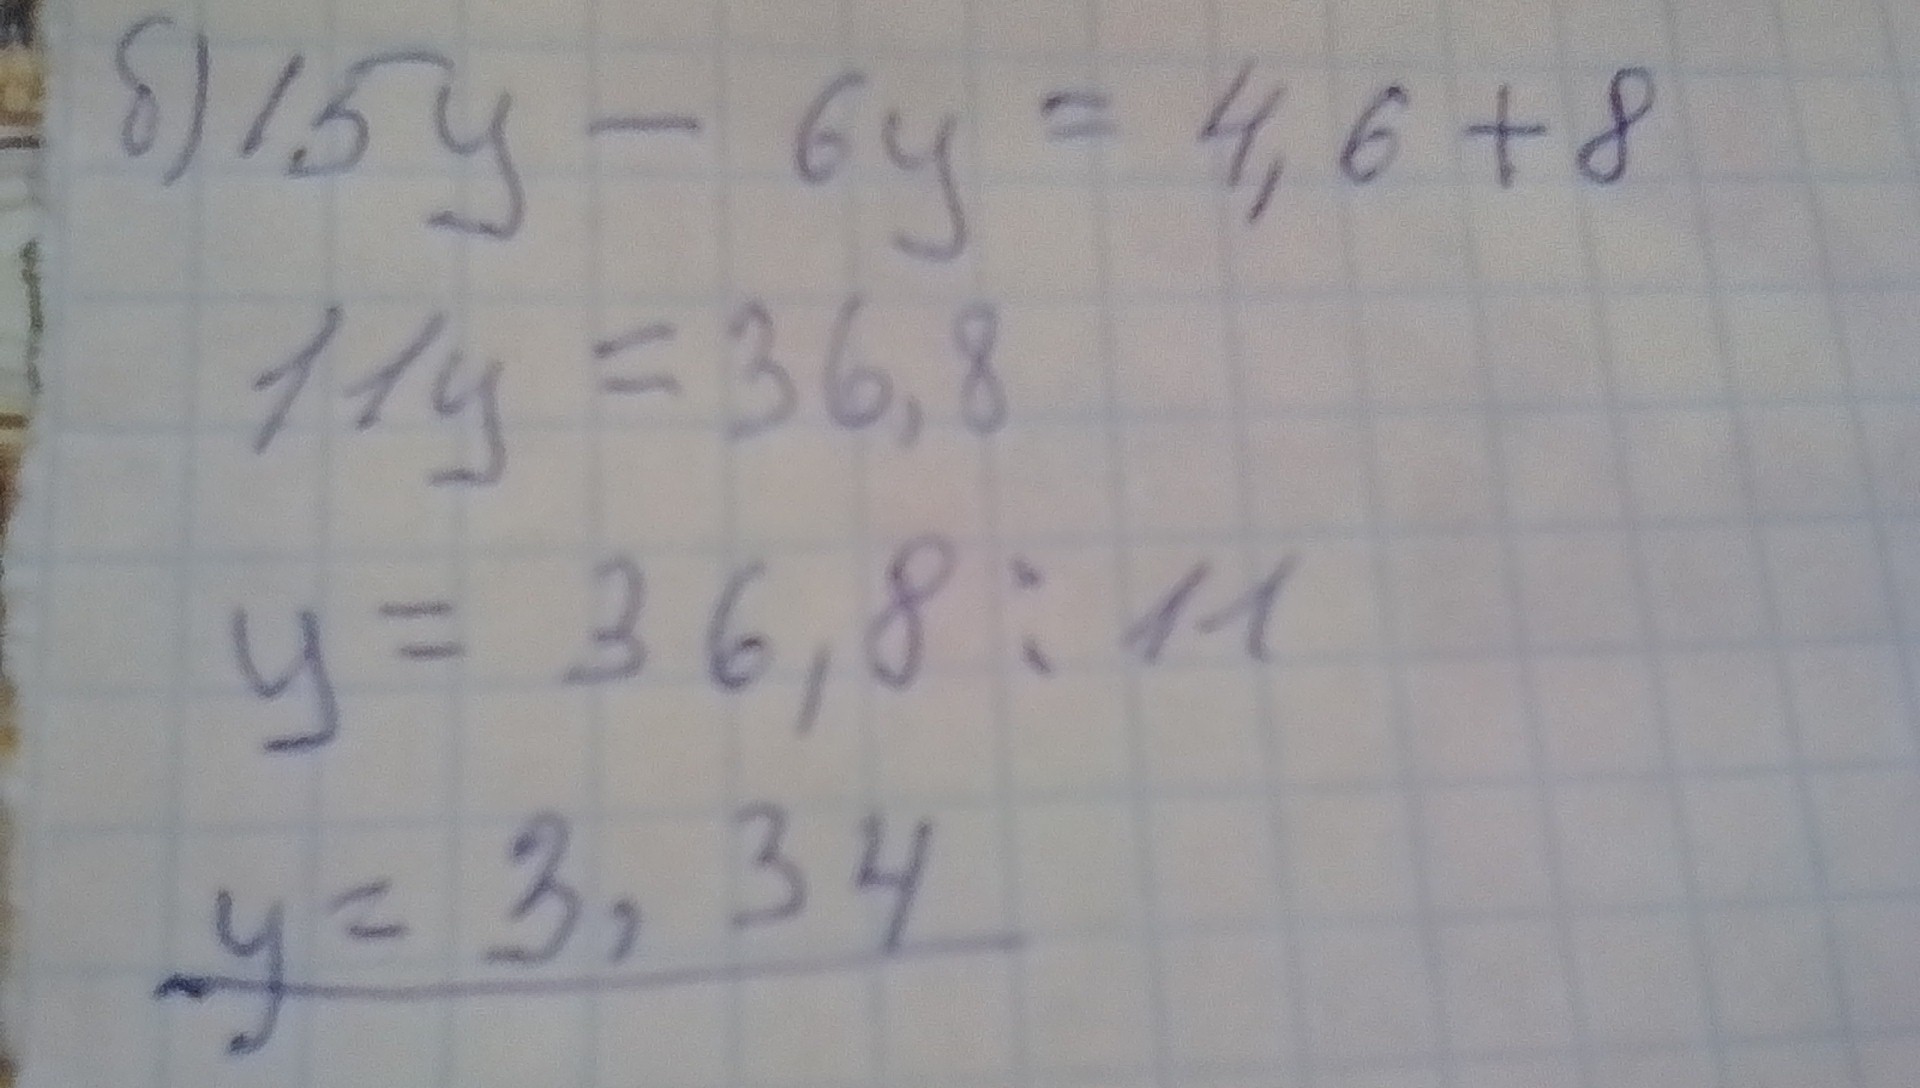 б) 15у - 6у = 4,6 + 8
11у = 36,8
у = 36,8 : 11
у = 3,34